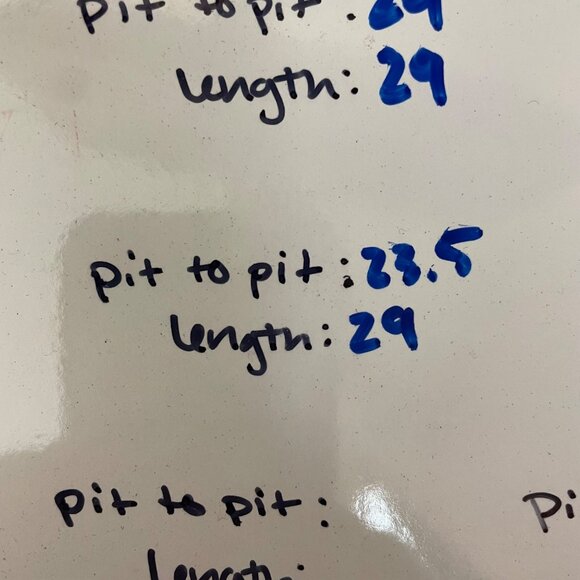 pit to pit:
length: 29
pit to pit: 23.5
length: 29
pit to pit:
length: